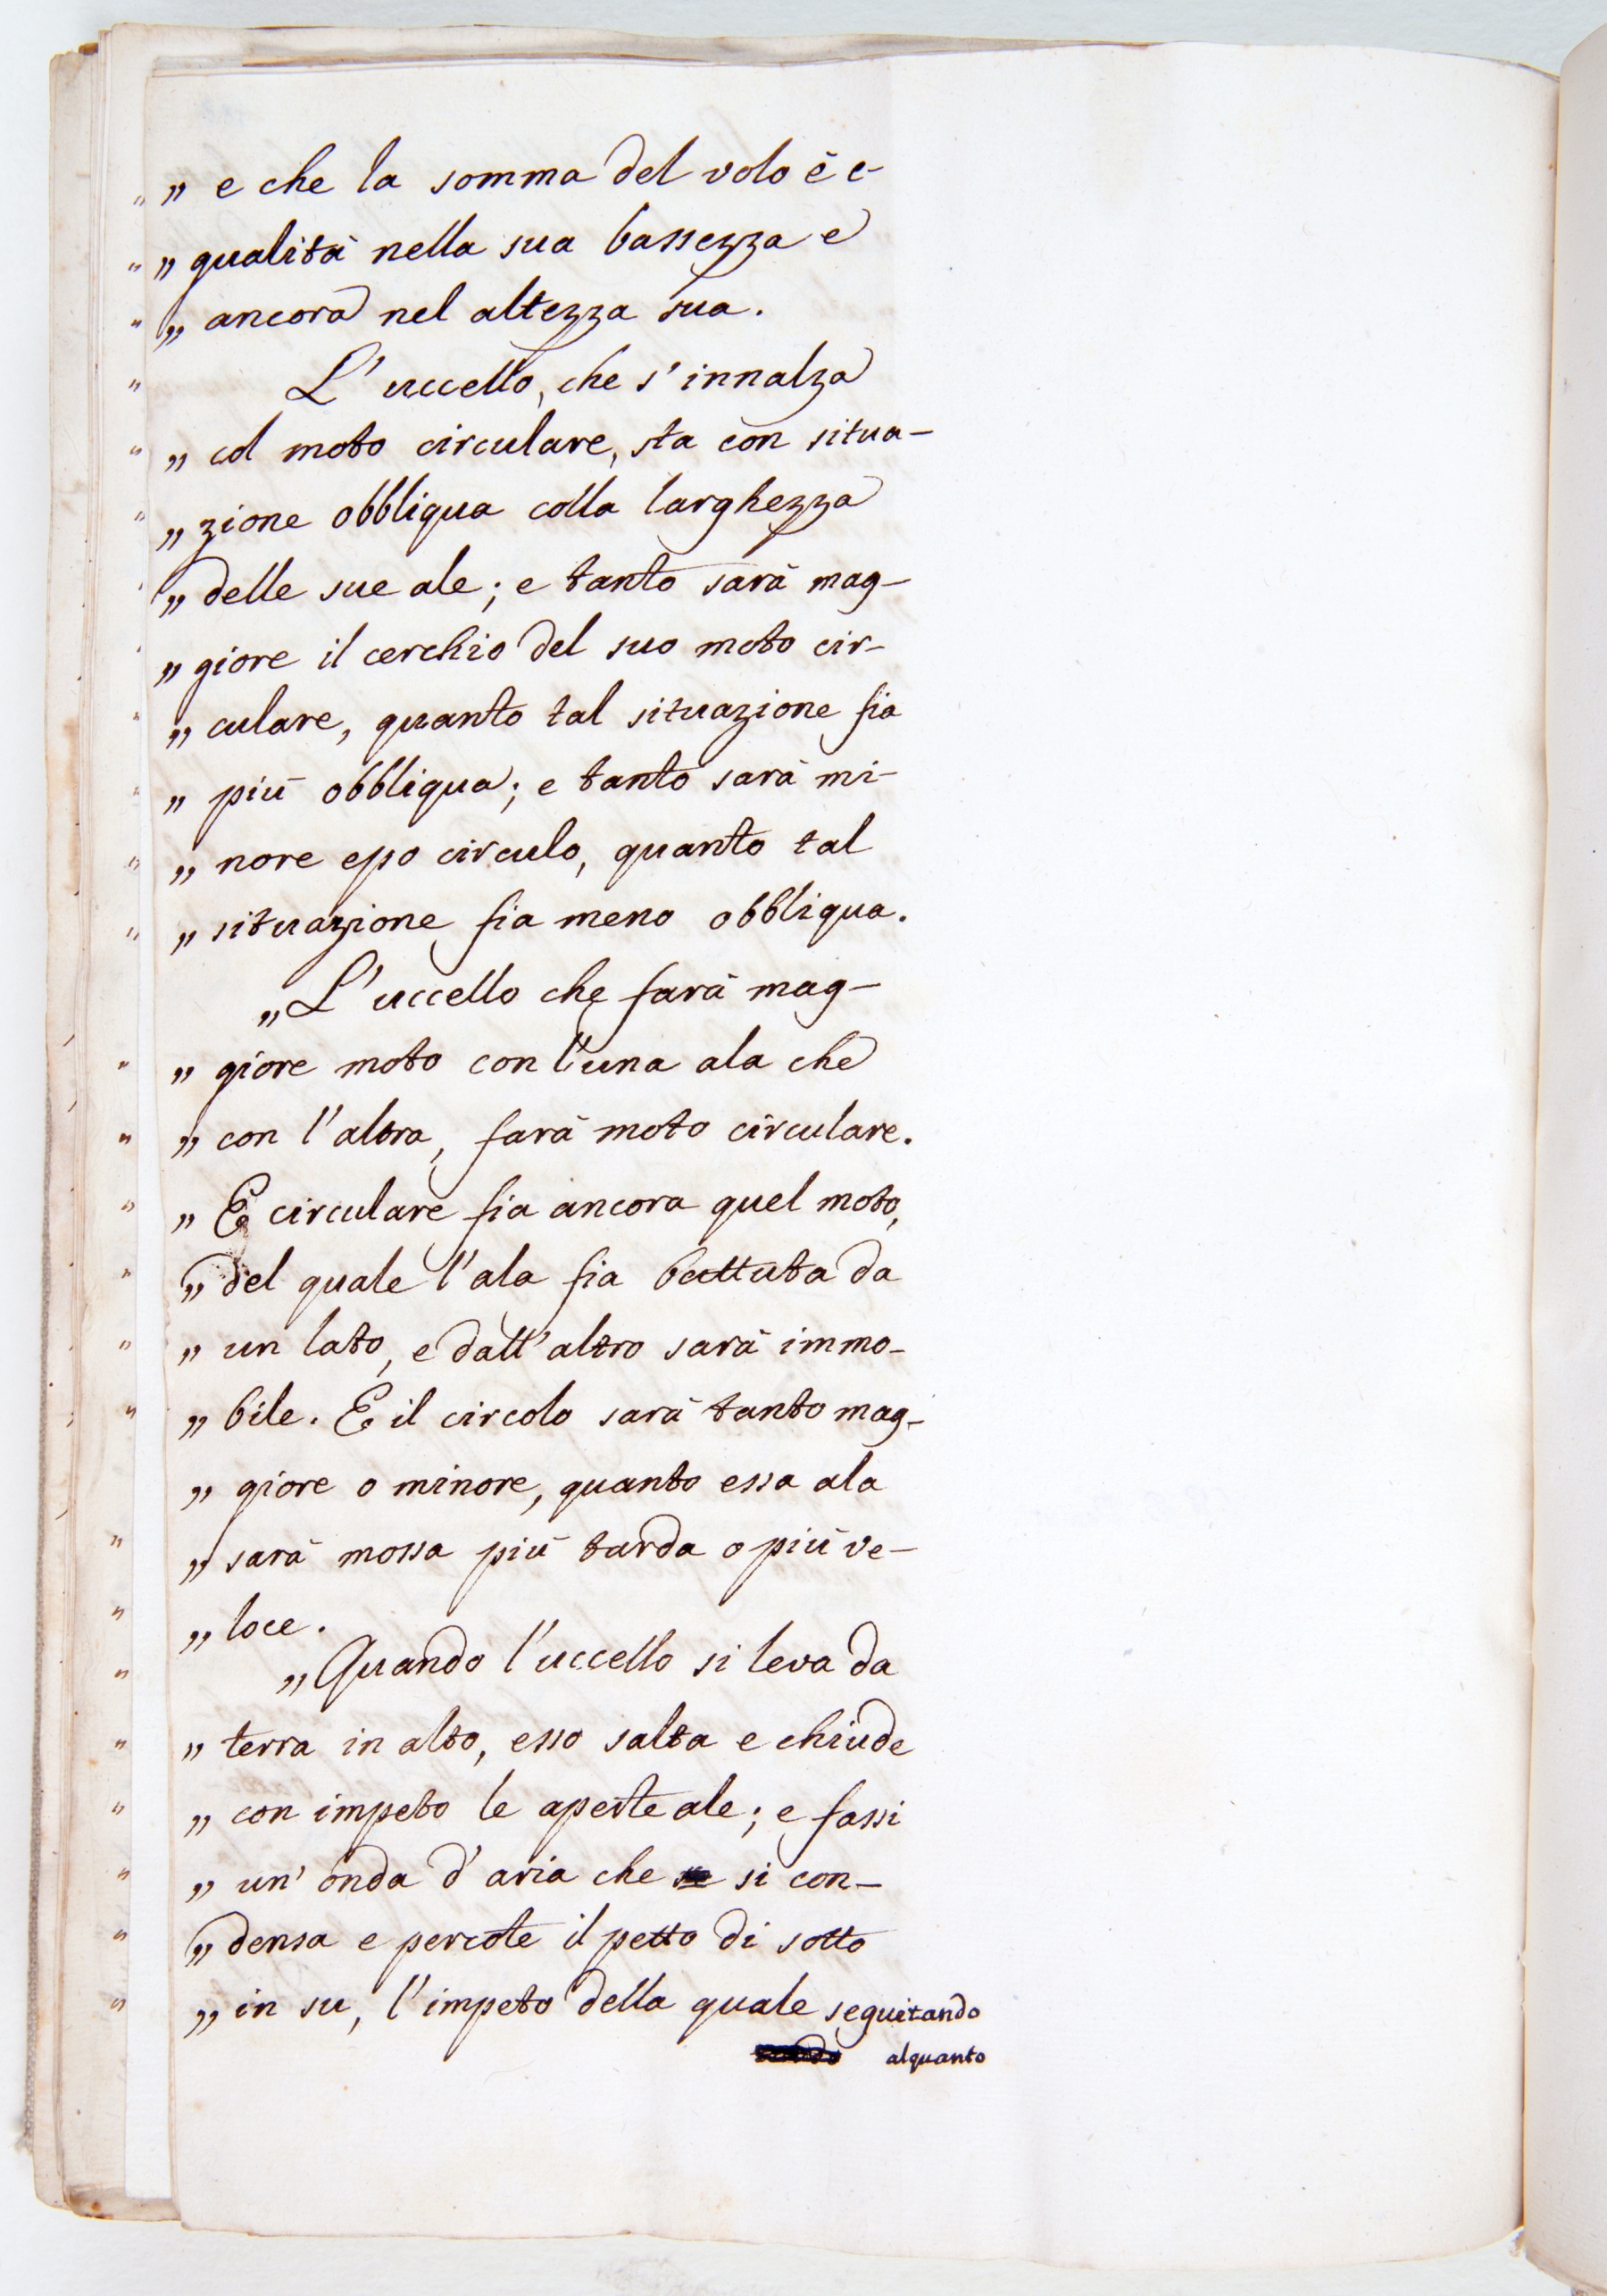 „ e che la somma del volo è e-
„ qualità nella sua bassezza e
„ ancora nel altezza sua.
L'uccello, che s'innalza
„ col moto circulare, sta con situa-
„ zione obbliqua colla larghezza
„ delle sue ale; e tanto sarà mag-
„ giore il cerchio del suo moto cir-
„ culare, quanto tal situazione fia
„ più obbliqua; e tanto sarà mi-
„ nore esso circulo, quanto tal
„ situazione fia meno obbliqua.
„ L'uccello che farà mag-
„ giore moto con l'una ala che
„ con l'altra, farà moto circulare.
„ E circulare fia ancora quel moto,
„ del quale l'ala fia battuta da
„ un lato, e dall'altro sarà immo-
„ bile. E il circolo sarà tanto mag-
„ giore o minore, quanto essa ala
„ sarà mossa più tarda o più ve-
„ loce.
„ Quando l'uccello si leva da
„ terra in alto, esso salta e chiude
„ con impeto le aperte ale; e fassi
„ un' onda d'aria che si con-
„ densa e percote il petto di sotto
„ in su, l'impeto della quale seguitando
alquanto